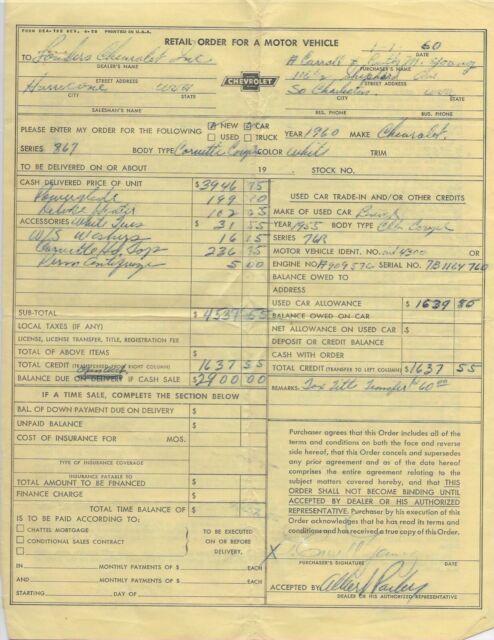 FORM DEA-758 REV. 4-58 PRINTED IN U.S.A.
RETAIL ORDER FOR A MOTOR VEHICLE
1 - 1 60
DATE
TO Chevrolet Inc
DEALER'S NAME
A Carroll & Young
PURCHASER'S NAME
STREET ADDRESS
Shepherd Ave
STREET ADDRESS
Hurricane WVA
CITY STATE
CHEVROLET
So Charleston
CITY STATE
SALESMAN'S NAME
RES. PHONE BUS. PHONE
PLEASE ENTER MY ORDER FOR THE FOLLOWING
NEW CAR
USED TRUCK
YEAR 1960 MAKE Chevrolet
SERIES 867 BODY TYPE Corvette COLOR White TRIM
TO BE DELIVERED ON OR ABOUT 19 STOCK NO.
CASH DELIVERED PRICE OF UNIT $ 3946 75
Powerglide 199 10
Deluxe Heater 102 25
ACCESSORIES White Tires 31 55
W/S Washers 16 15
Corvette Top 236 75
Perm Antifreeze 5 00
SUB-TOTAL $ 4537 55
LOCAL TAXES (IF ANY)
LICENSE, LICENSE TRANSFER, TITLE, REGISTRATION FEE
TOTAL OF ABOVE ITEMS
TOTAL CREDIT (TRANSFERRED FROM RIGHT COLUMN) 1637 55
BALANCE DUE ON DELIVERY IF CASH SALE $ 2900 00
IF A TIME SALE, COMPLETE THE SECTION BELOW
BAL. OF DOWN PAYMENT DUE ON DELIVERY $
UNPAID BALANCE $
COST OF INSURANCE FOR MOS.
TYPE OF INSURANCE COVERAGE
INSURANCE PAYABLE TO
TOTAL AMOUNT TO BE FINANCED $
FINANCE CHARGE $
TOTAL TIME BALANCE OF $
IS TO BE PAID ACCORDING TO:
CHATTEL MORTGAGE
CONDITIONAL SALES CONTRACT
TO BE EXECUTED ON OR BEFORE DELIVERY.
IN MONTHLY PAYMENTS OF $
AND MONTHLY PAYMENTS OF $
STARTING DAY OF
USED CAR TRADE-IN AND/OR OTHER CREDITS
MAKE OF USED CAR Buick
YEAR 1955 BODY TYPE
SERIES 76R
MOTOR VEHICLE IDENT. NO.
ENGINE NO. SERIAL NO. 7B1164760
BALANCE OWED TO
ADDRESS
USED CAR ALLOWANCE $
BALANCE OWED ON CAR
NET ALLOWANCE ON USED CAR $
DEPOSIT OR CREDIT BALANCE
CASH WITH ORDER
TOTAL CREDIT (TRANSFER TO LEFT COLUMN) $ 1637 55
REMARKS: Tax Title Transfer 60.00
Purchaser agrees that this Order includes all of the
terms and conditions on both the face and reverse
side hereof, that this Order cancels and supersedes
any prior agreement and as of the date hereof
comprises the entire agreement relating to the
subject matters covered hereby, and that THIS
ORDER SHALL NOT BECOME BINDING UNTIL
ACCEPTED BY DEALER OR HIS AUTHORIZED
REPRESENTATIVE. Purchaser by his execution of this
Order acknowledges that he has read its terms and
conditions and has received a true copy of this Order.
X
PURCHASER'S SIGNATURE DATE
ACCEPTED BY Albert
DEALER OR HIS AUTHORIZED REPRESENTATIVE